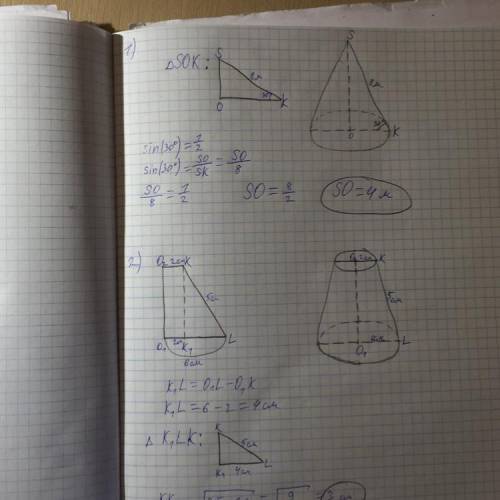 1)
△SOK:
S
8м
30°
O
K
S
8м
30°
O
K
sin(30°) = 1/2
sin(30°) = SO/SK = SO/8
SO/8 = 1/2
SO = 8/2
SO = 4м
2)
O₂ 2см K
5см
O₁ 2см K₁ L
6см
2см K
5см
O₁ 6см L
K₁L = O₁L - O₁K
K₁L = 6 - 2 = 4см
△ K₁LK:
K
5см
K₁ 4см L